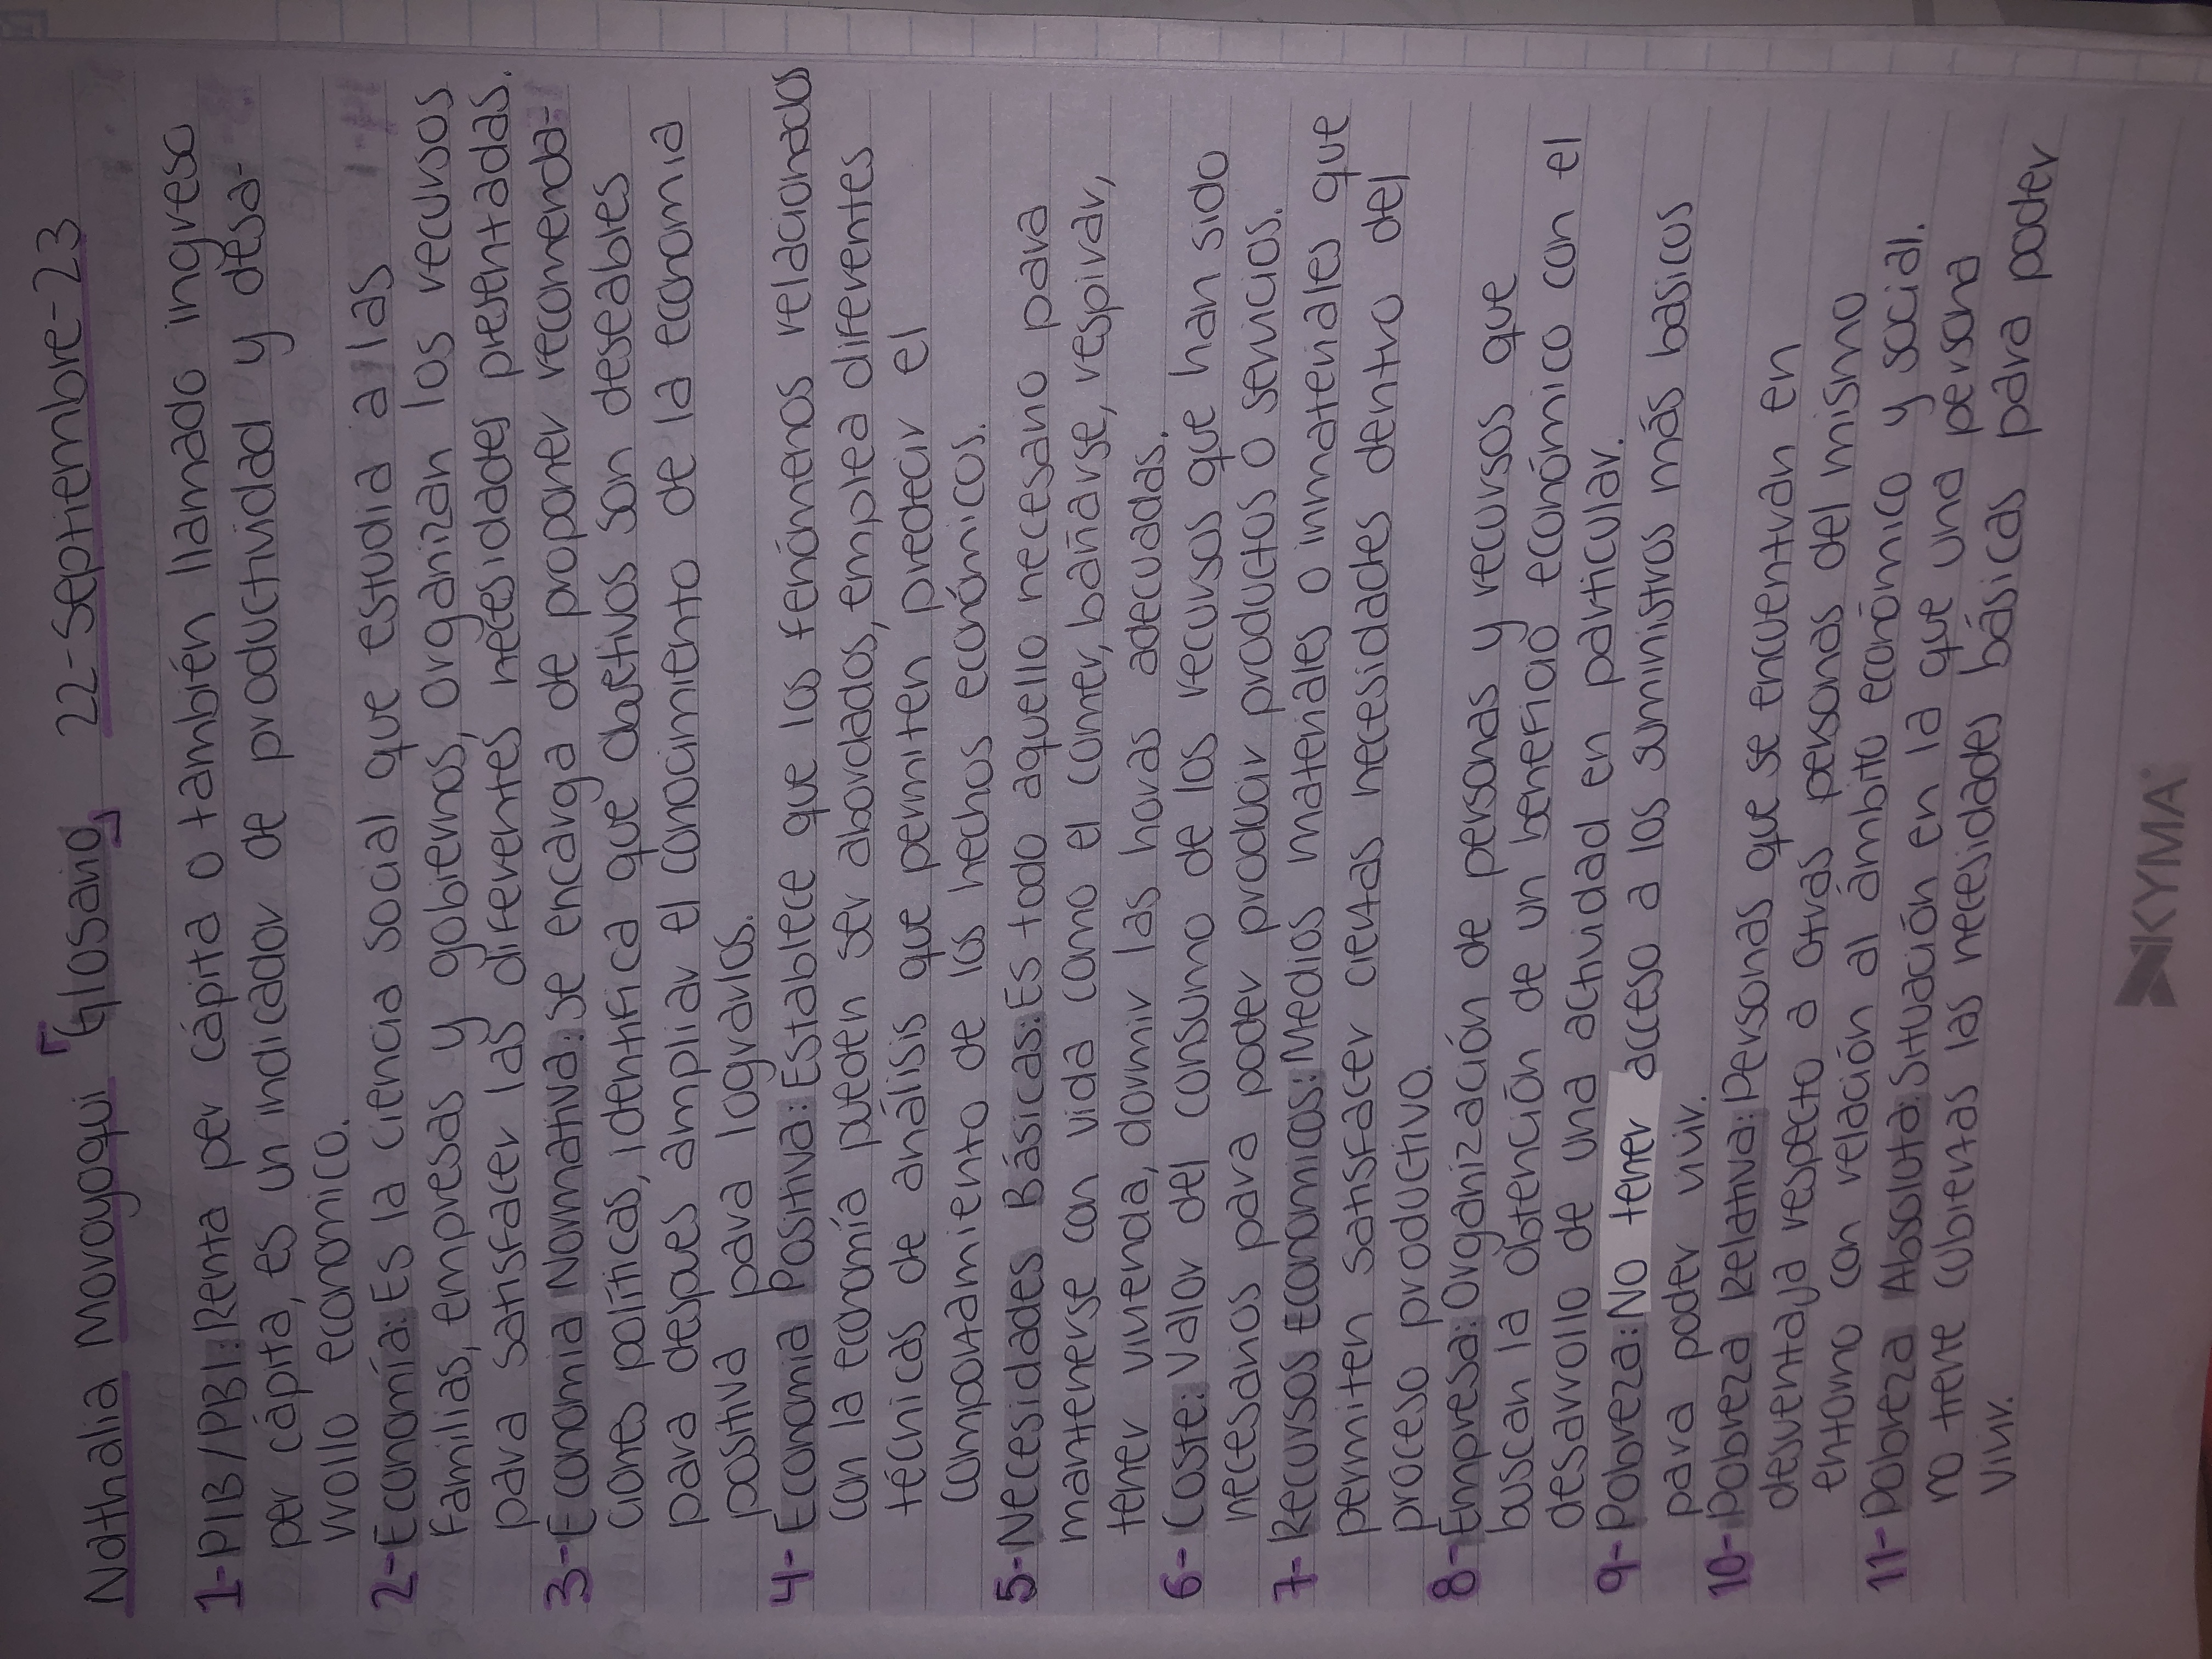 Nathalia Moroyoqui "Glosario" 22-Septiembre-23
1- PIB/PBI: Renta per cápita o también llamado ingreso
per cápita, es un indicador de productividad y desa-
rrollo economico.
2- Economía: Es la ciencia social que estudia a las
familias, empresas y gobiernos, organizan los recursos
para satisfacer las diferentes necesidades presentadas.
3- Economia Normativa: se encarga de proponer recomenda-
ciones políticas, identifica que objetivos son deseables
para despues ampliar el conocimiento de la economia
positiva para lograrlos.
4- Economia Positiva: Establece que los fenómenos relacionados
con la economía pueden ser abordados, emplea diferentes
técnicas de análisis que permiten predecir el
comportamiento de los hechos económicos.
5- Necesidades Básicas: Es todo aquello necesario para
mantenerse con vida como el comer, bañarse, respirar,
tener vivienda, dormir las horas adecuadas.
6- Coste: Valor del consumo de los recursos que han sido
necesarios para poder producir productos o servicios.
7- Recursos Economicos: Medios materiales o inmateriales que
permiten satisfacer ciertas necesidades dentro del
proceso productivo.
8- Empresa: Organización de personas y recursos que
buscan la obtención de un beneficio económico con el
desarrollo de una actividad en particular.
9- Pobreza: No tener acceso a los suministros más basicos
para poder vivir.
10- Pobreza Relativa: Personas que se encuentran en
desventaja respecto a otras personas del mismo
entorno con relación al ámbito económico y social.
11- Pobreza Absoluta: Situación en la que una persona
no tiene cubiertas las necesidades básicas para poder
vivir.
KYMA